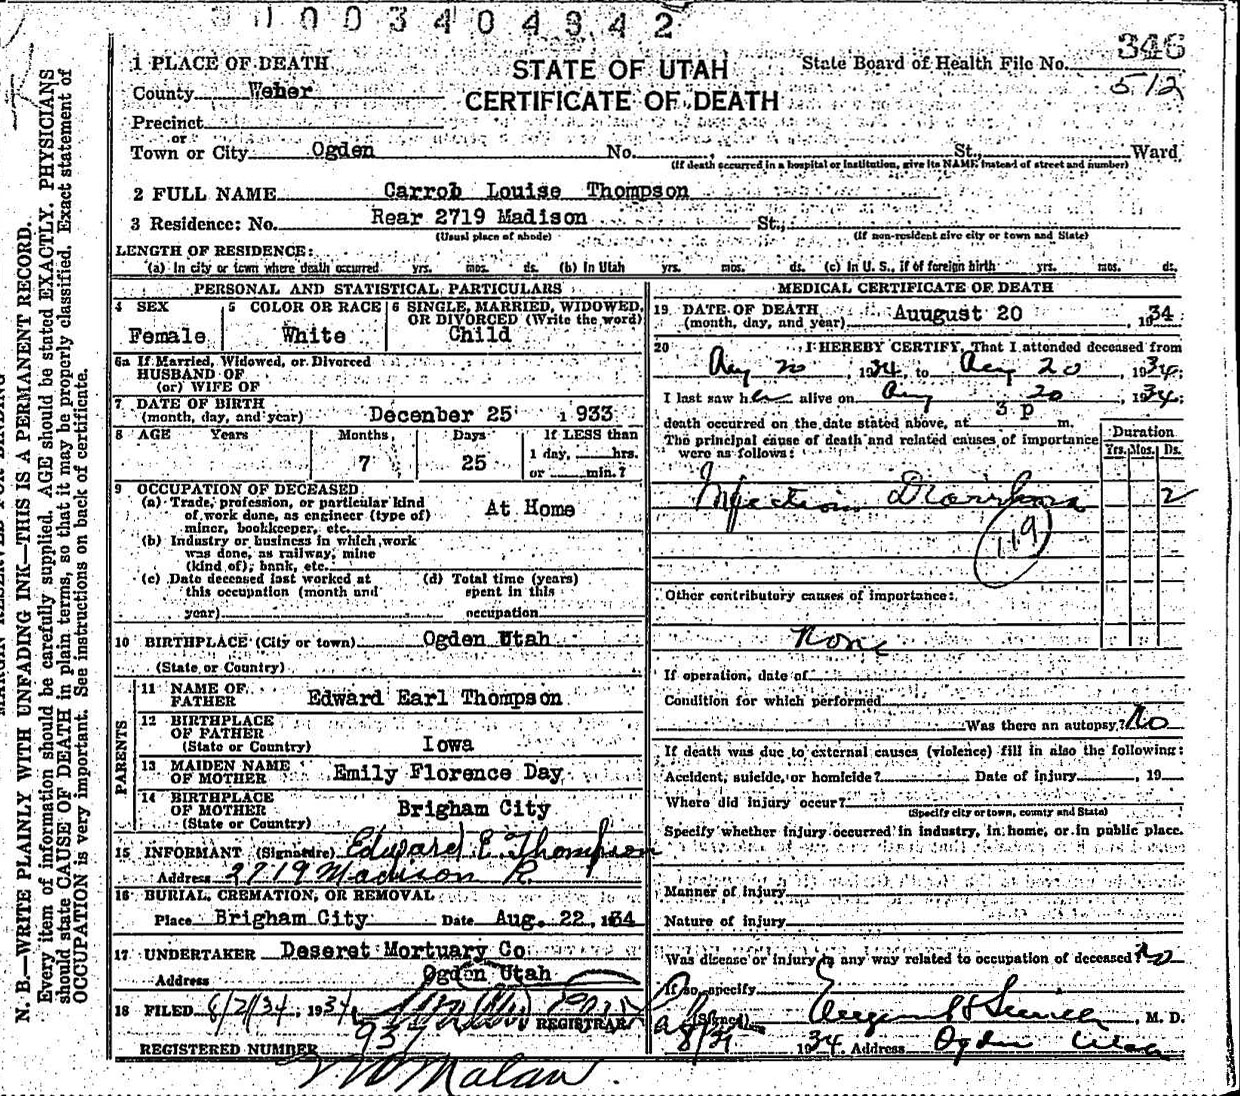 0003404942
346
512
1 PLACE OF DEATH
STATE OF UTAH
State Board of Health File No.
County Weber
CERTIFICATE OF DEATH
Precinct
or
Town or City Ogden No. St., Ward
(If death occurred in a hospital or institution, give its NAME instead of street and number)
2 FULL NAME Carrol Louise Thompson
3 Residence: No. Rear 2719 Madison St.,
(Usual place of abode) (If non-resident give city or town and State)
LENGTH OF RESIDENCE:
(a) In city or town where death occurred yrs. mos. ds. (b) In Utah yrs. mos. ds. (c) In U. S., if of foreign birth yrs. mos. ds.
PERSONAL AND STATISTICAL PARTICULARS
4 SEX
Female
5 COLOR OR RACE
White
6 SINGLE, MARRIED, WIDOWED,
OR DIVORCED (Write the word)
Child
6a If Married, Widowed, or Divorced
HUSBAND OF
(or) WIFE OF
7 DATE OF BIRTH
(month, day, and year) December 25 1933
8 AGE Years Months Days If LESS than
7 25 1 day, hrs.
or min.?
9 OCCUPATION OF DECEASED
(a) Trade, profession, or particular kind
of work done, as engineer (type of)
miner, bookkeeper, etc.
At Home
(b) Industry or business in which work
was done, as railway, mine
(kind of); bank, etc.
(c) Date deceased last worked at
this occupation (month and
year)
(d) Total time (years)
spent in this
occupation
10 BIRTHPLACE (City or town) Ogden Utah
(State or Country)
PARENTS
11 NAME OF
FATHER Edward Earl Thompson
12 BIRTHPLACE
OF FATHER
(State or Country) Iowa
13 MAIDEN NAME
OF MOTHER Emily Florence Day
14 BIRTHPLACE
OF MOTHER Brigham City
(State or Country)
15 INFORMANT (Signature) Edward E. Thompson
Address 2719 Madison R
16 BURIAL, CREMATION, OR REMOVAL
Place Brigham City Date Aug. 22, 1934
17 UNDERTAKER Deseret Mortuary Co
Address Ogden Utah
18 FILED 8/21/34, 1934
REGISTRAR
REGISTERED NUMBER 937
Malan
MEDICAL CERTIFICATE OF DEATH
19 DATE OF DEATH
(month, day, and year) Auugust 20, 1934
20 I HEREBY CERTIFY, That I attended deceased from
Aug 20, 1934, to Aug 20, 1934;
I last saw her alive on Aug 20, 1934;
death occurred on the date stated above, at 3 p m.
The principal cause of death and related causes of importance
were as follows:
Duration
Yrs. Mos. Ds.
Infectious Diarrhoea 2
119
Other contributory causes of importance:
None
If operation, date of
Condition for which performed
Was there an autopsy? No
If death was due to external causes (violence) fill in also the following:
Accident, suicide, or homicide? Date of injury , 19
Where did injury occur?
(Specify city or town, county and State)
Specify whether injury occurred in industry, in home, or in public place.
Manner of injury
Nature of injury
Was disease or injury in any way related to occupation of deceased? No
If so, specify
(Signed) , M. D.
8/21 1934 Address Ogden Utah
N. B.—WRITE PLAINLY WITH UNFADING INK—THIS IS A PERMANENT RECORD.
Every item of information should be carefully supplied. AGE should be stated EXACTLY. PHYSICIANS
should state CAUSE OF DEATH in plain terms, so that it may be properly classified. Exact statement of
OCCUPATION is very important. See instructions on back of certificate.